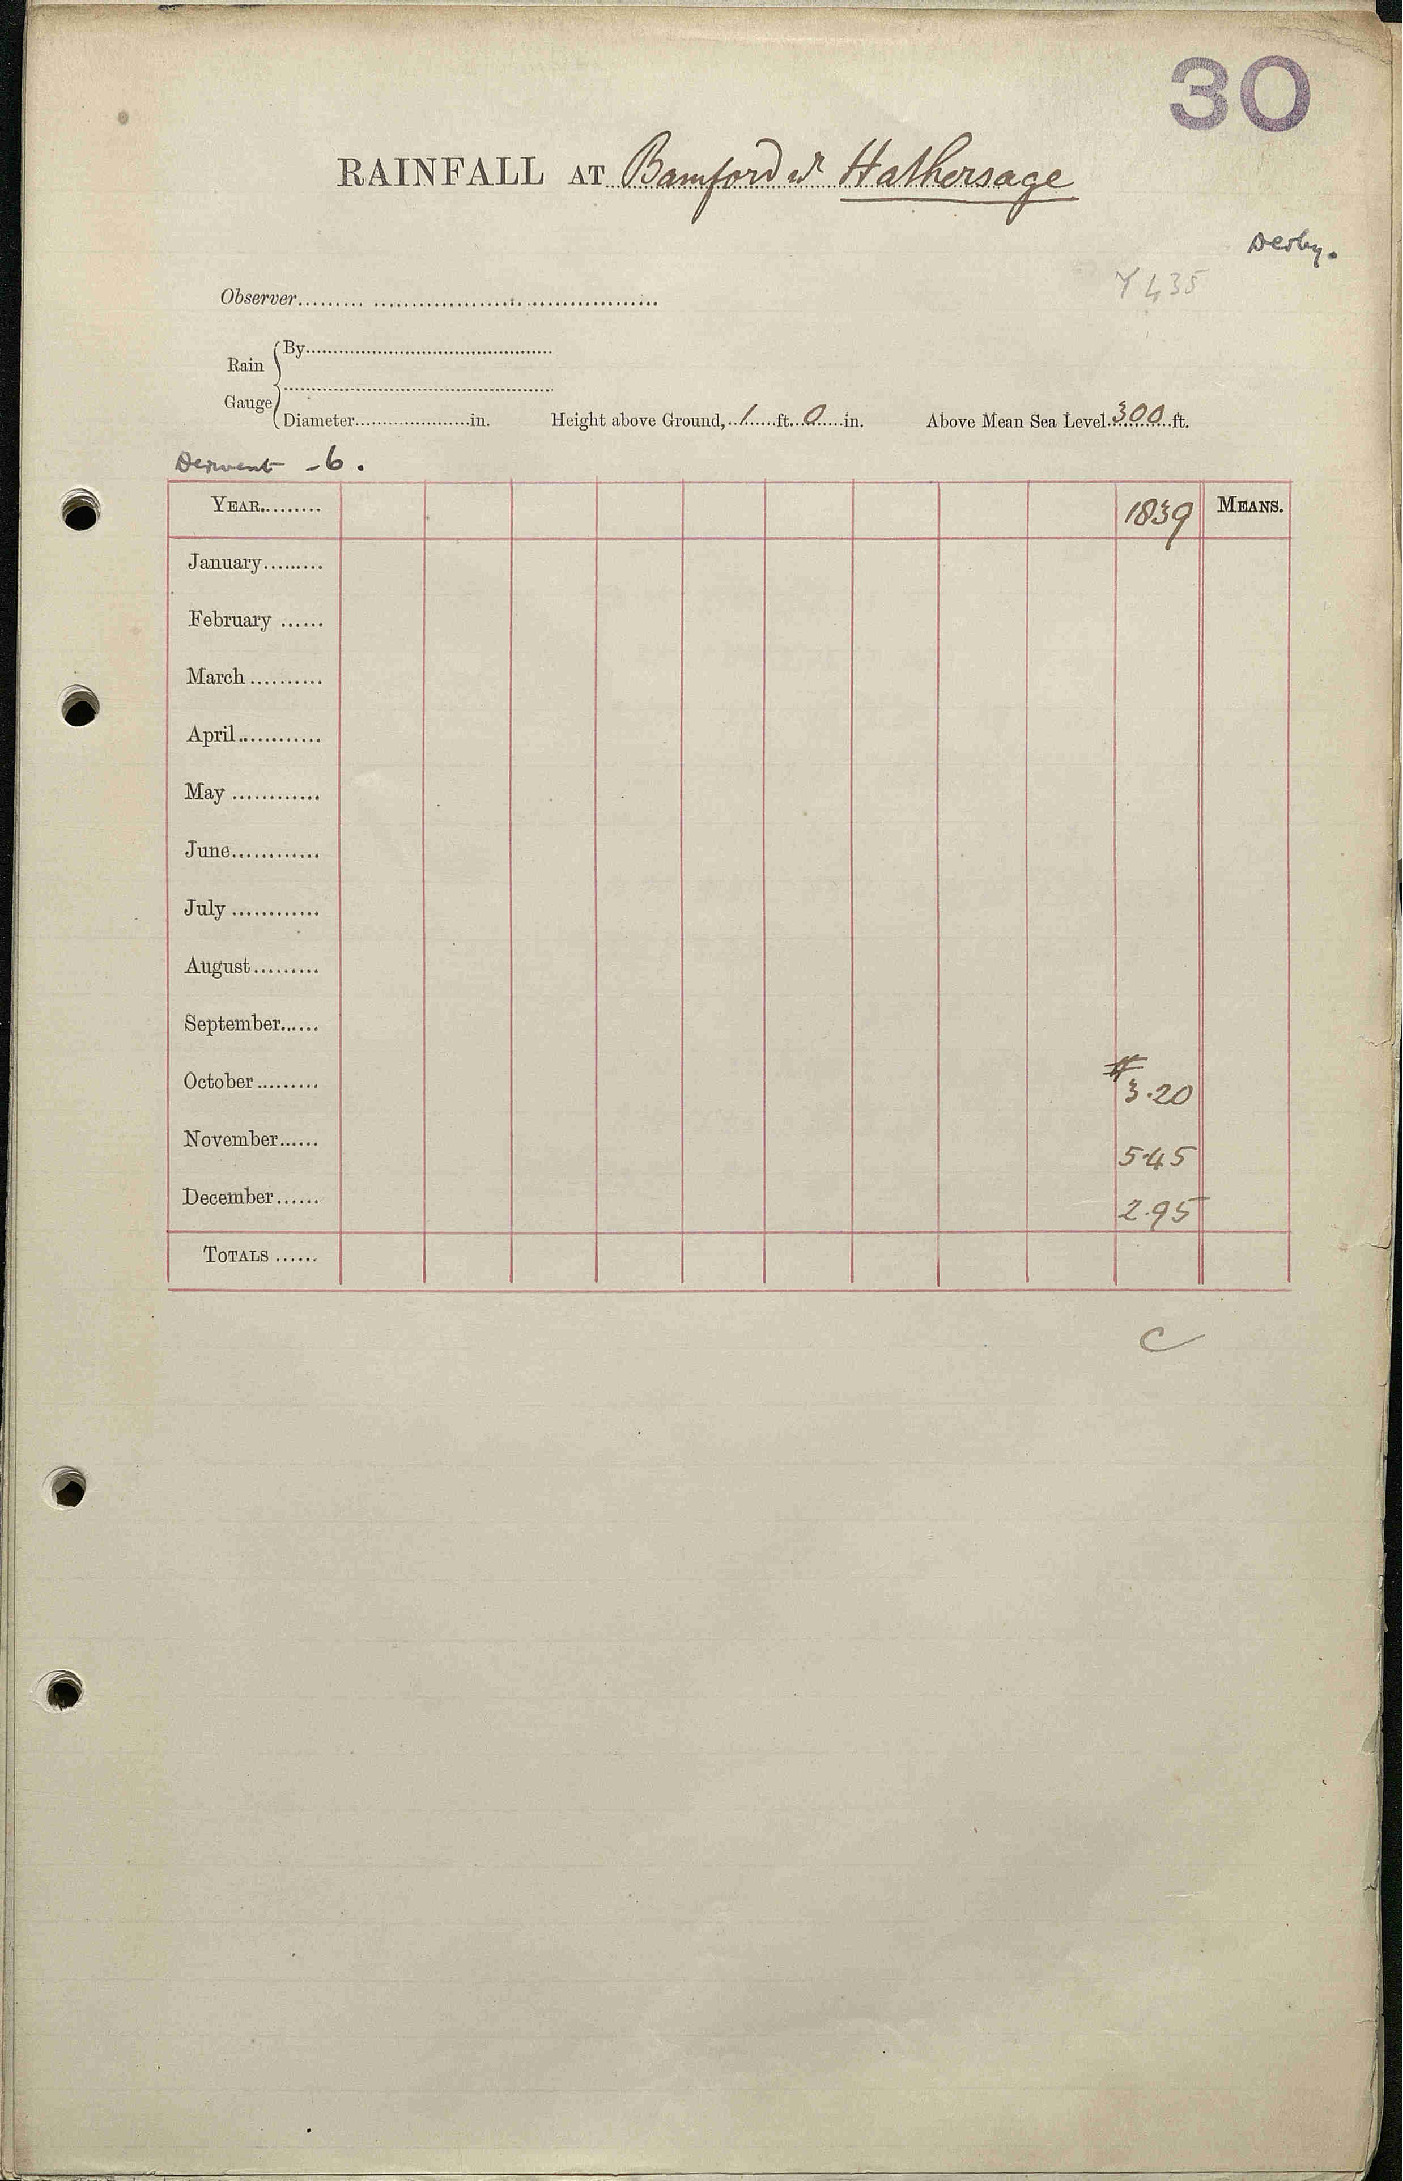 30
RAINFALL AT Bamford nr Hathersage
Derby.
Y435
Observer
Rain Gauge { By
Diameter in. Height above Ground, 1 ft. 0 in. Above Mean Sea Level 300 ft.
Derwent - 6.
YEAR 1839 MEANS.
January
February
March
April
May
June
July
August
September
October # 3.20
November 5.45
December 2.95
TOTALS
C